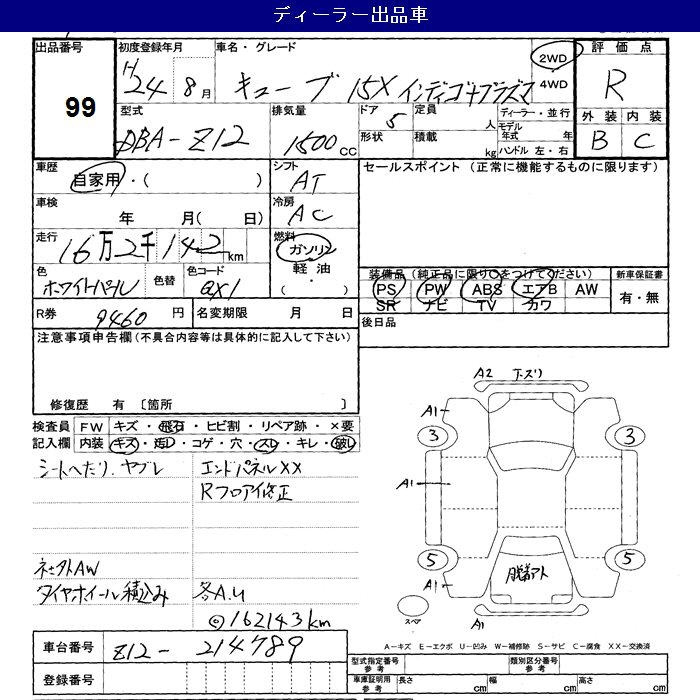 ディーラー出品車
出品番号 初度登録年月 車名・グレード 評価点
99
H24年 8月 キューブ 15X インディゴ+プラズマ 2WD・4WD R
型式 排気量 ドア 定員 ディーラー・並行 外装 内装
DBA-Z12 1500cc 5 人 モデル年式 年 B C
形状 積載 kg ハンドル 左・右
車歴 シフト セールスポイント(正常に機能するものに限ります)
自家用・( ) AT
車検 冷房
年 月( 日) AC
走行 燃料
16万2千142km ガソリン
軽油
( ・ )
色 色替 色コード 装備品(純正品に限り○をつけてください) 新車保証書
ホワイトパール QX1 PS PW ABS エアB AW 有・無
SR ナビ TV カワ
R券 9460円 名変期限 月 日 後日品
注意事項申告欄(不具合内容等は具体的に記入して下さい)
修復歴 有 〔箇所 〕
検査員 FW キズ・飛石・ヒビ割・リペア跡・×要
記入欄 内装 キズ・汚レ・コゲ・穴・スレ・キレ・破レ
シートヘたり、ヤブレ エンドパネルXX
Rフロア修正
社外AW
タイヤホイール積込み 各A.U
◎162143km
A2 下ズリ
A1
3 3
A1
5 5
脱着アト
A1
スペア A1
A-キズ E-エクボ U-凹み W-補修跡 S-サビ C-腐食 XX-交換済
車台番号 Z12-214789
登録番号
型式指定番号 参考 類別区分番号 参考
車庫証明用 参考 長さ cm 幅 cm 高さ cm